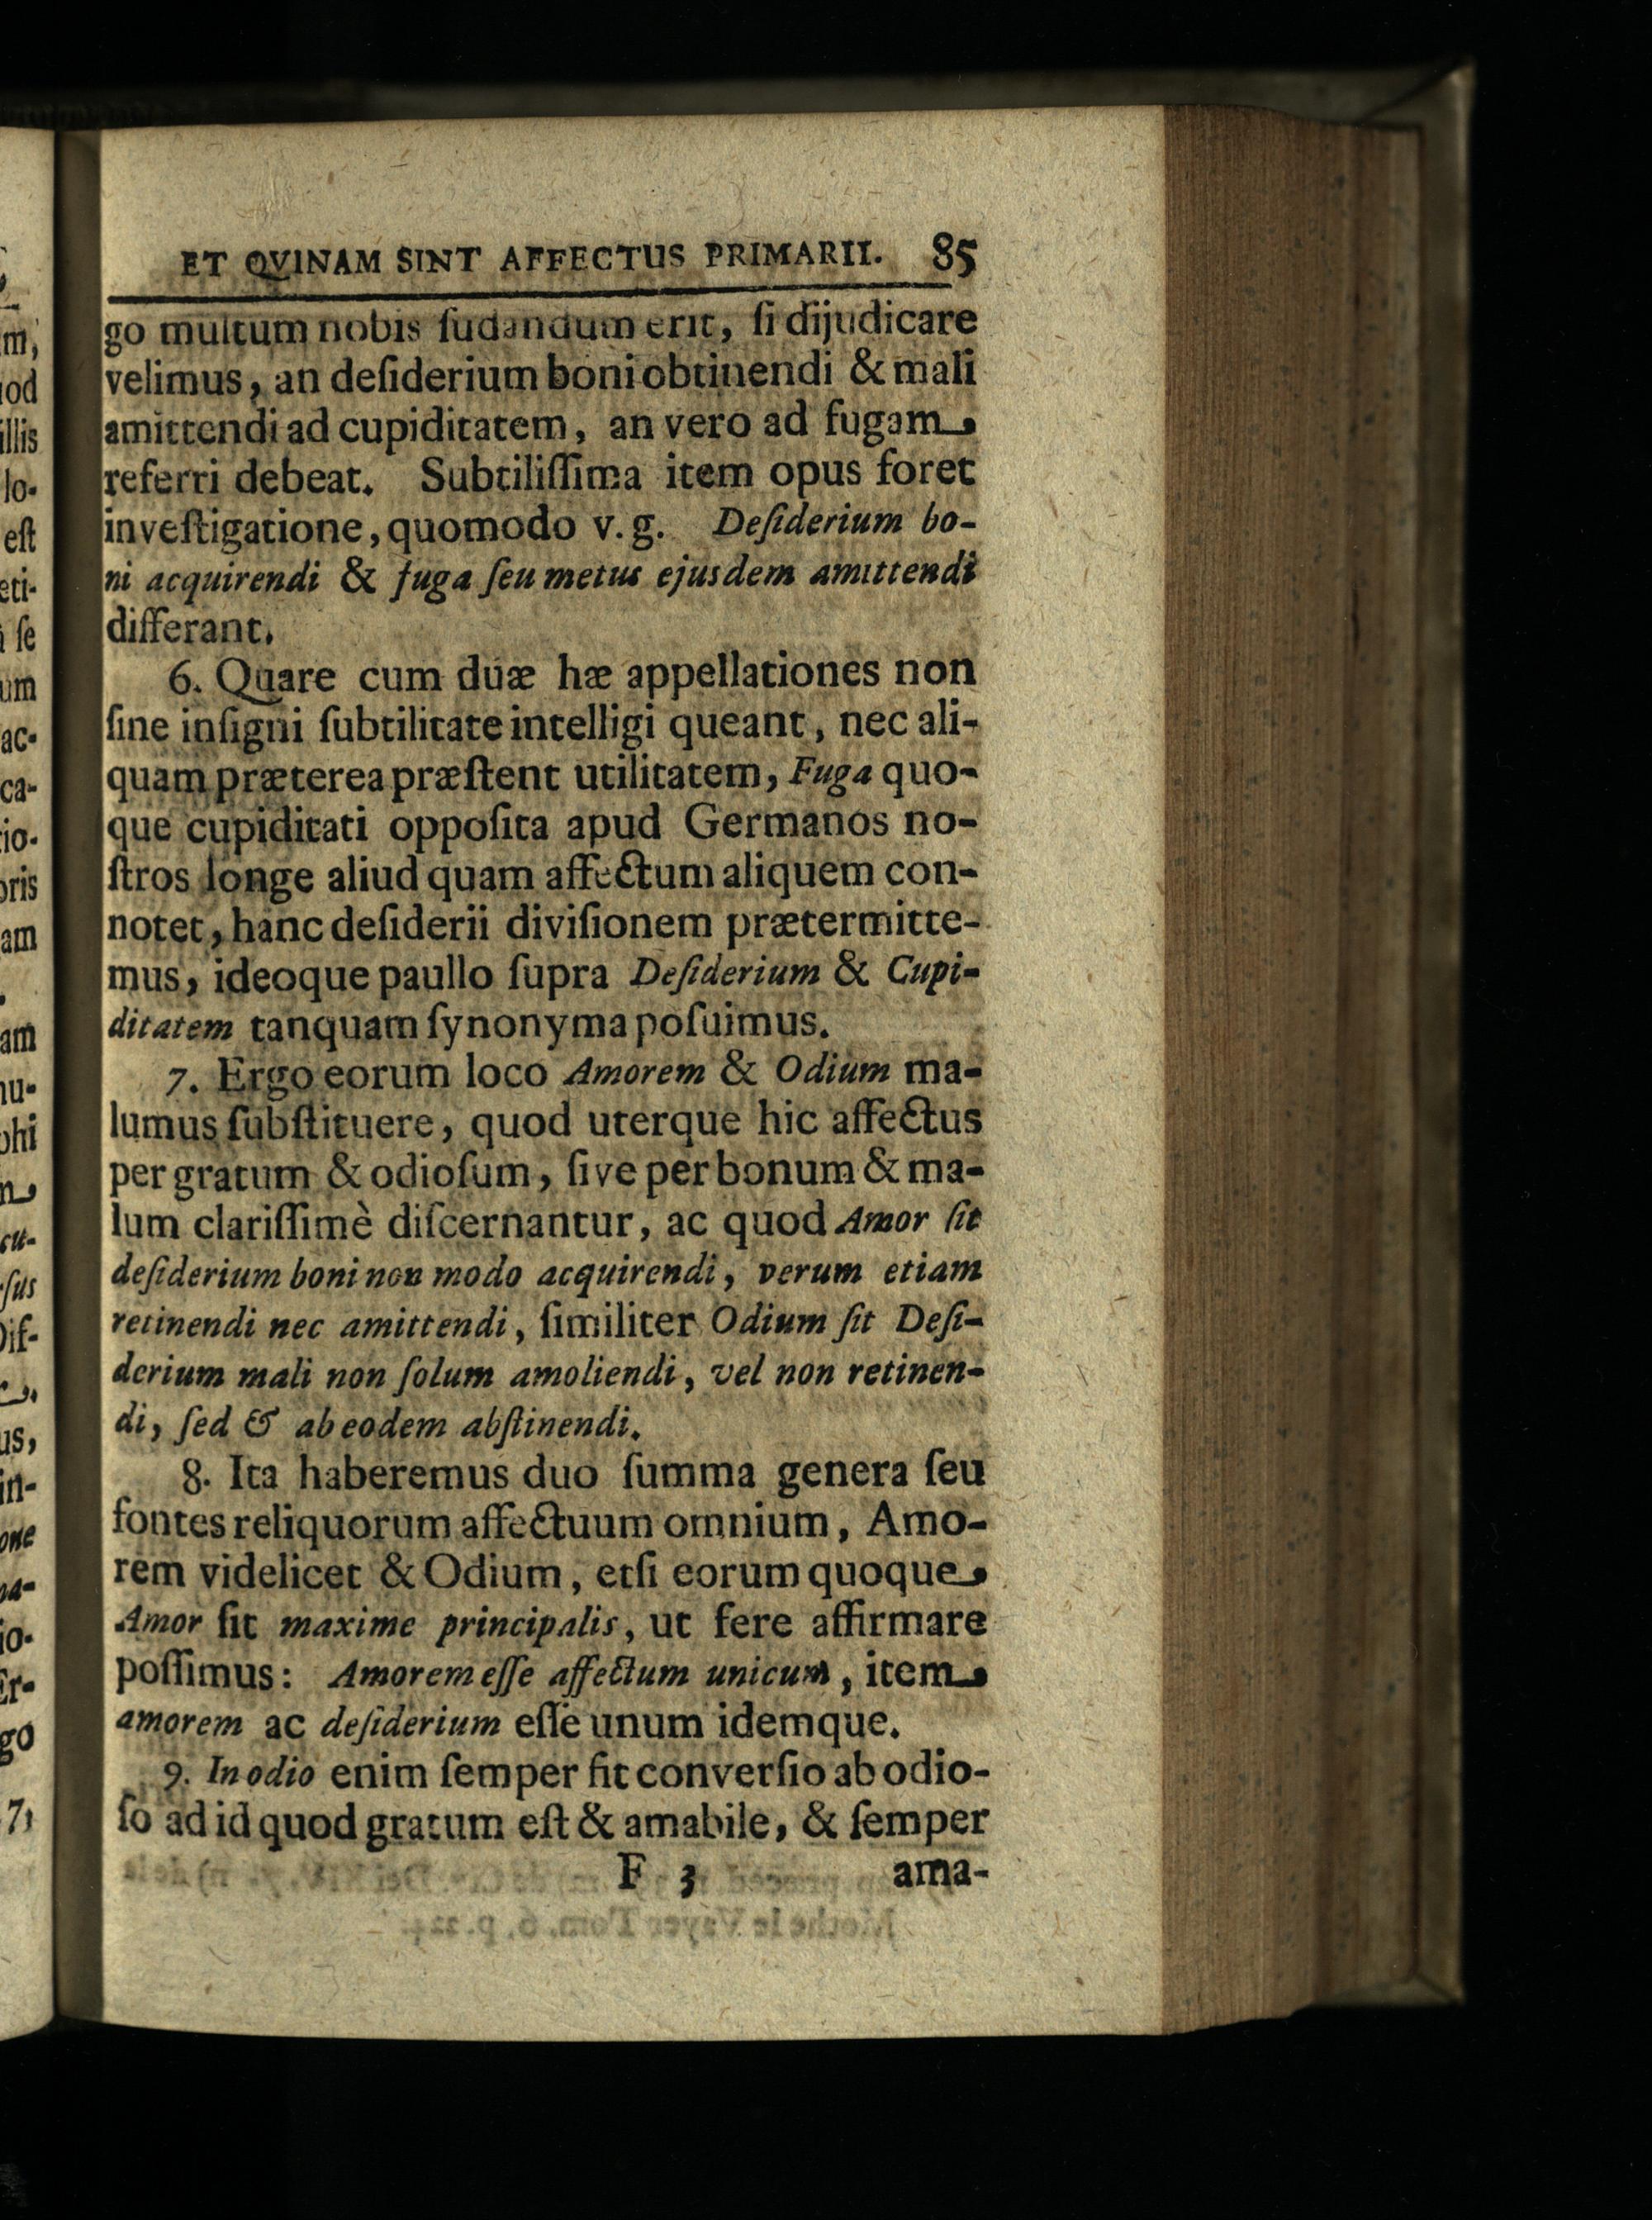 ET QVINAM SINT AFFECTUS PRIMARII. 85
go multum nobis ſudandum erit, ſi dijudicare
velimus, an deſiderium boni obtinendi & mali
amittendi ad cupiditatem, an vero ad fugam
referri debeat. Subtiliſſima item opus foret
inveſtigatione, quomodo v. g. Deſiderium bo-
ni acquirendi & fuga ſeu metus ejusdem amittendi
differant.
6. Quare cum duæ hæ appellationes non
ſine inſigni ſubtilitate intelligi queant, nec ali-
quam præterea præſtent utilitatem, Fuga quo-
que cupiditati oppoſita apud Germanos no-
ſtros longe aliud quam affectum aliquem con-
notet, hanc deſiderii diviſionem prætermitte-
mus, ideoque paullo ſupra Deſiderium & Cupi-
ditatem tanquam ſynonyma poſuimus.
7. Ergo eorum loco Amorem & Odium ma-
lumus ſubſtituere, quod uterque hic affectus
per gratum & odioſum, ſive per bonum & ma-
lum clariſſimè diſcernantur, ac quod Amor ſit
deſiderium boni non modo acquirendi, verum etiam
retinendi nec amittendi, ſimiliter Odium ſit Deſi-
derium mali non ſolum amoliendi, vel non retinen-
di, ſed & ab eodem abſtinendi.
8. Ita haberemus duo ſumma genera ſeu
fontes reliquorum affectuum omnium, Amo-
rem videlicet & Odium, etſi eorum quoque
Amor ſit maxime principalis, ut fere affirmare
poſſimus: Amorem eſſe affectum unicum, item
amorem ac deſiderium eſſe unum idemque.
9. In odio enim ſemper fit converſio ab odio-
ſo ad id quod gratum eſt & amabile, & ſemper
F 3 ama-